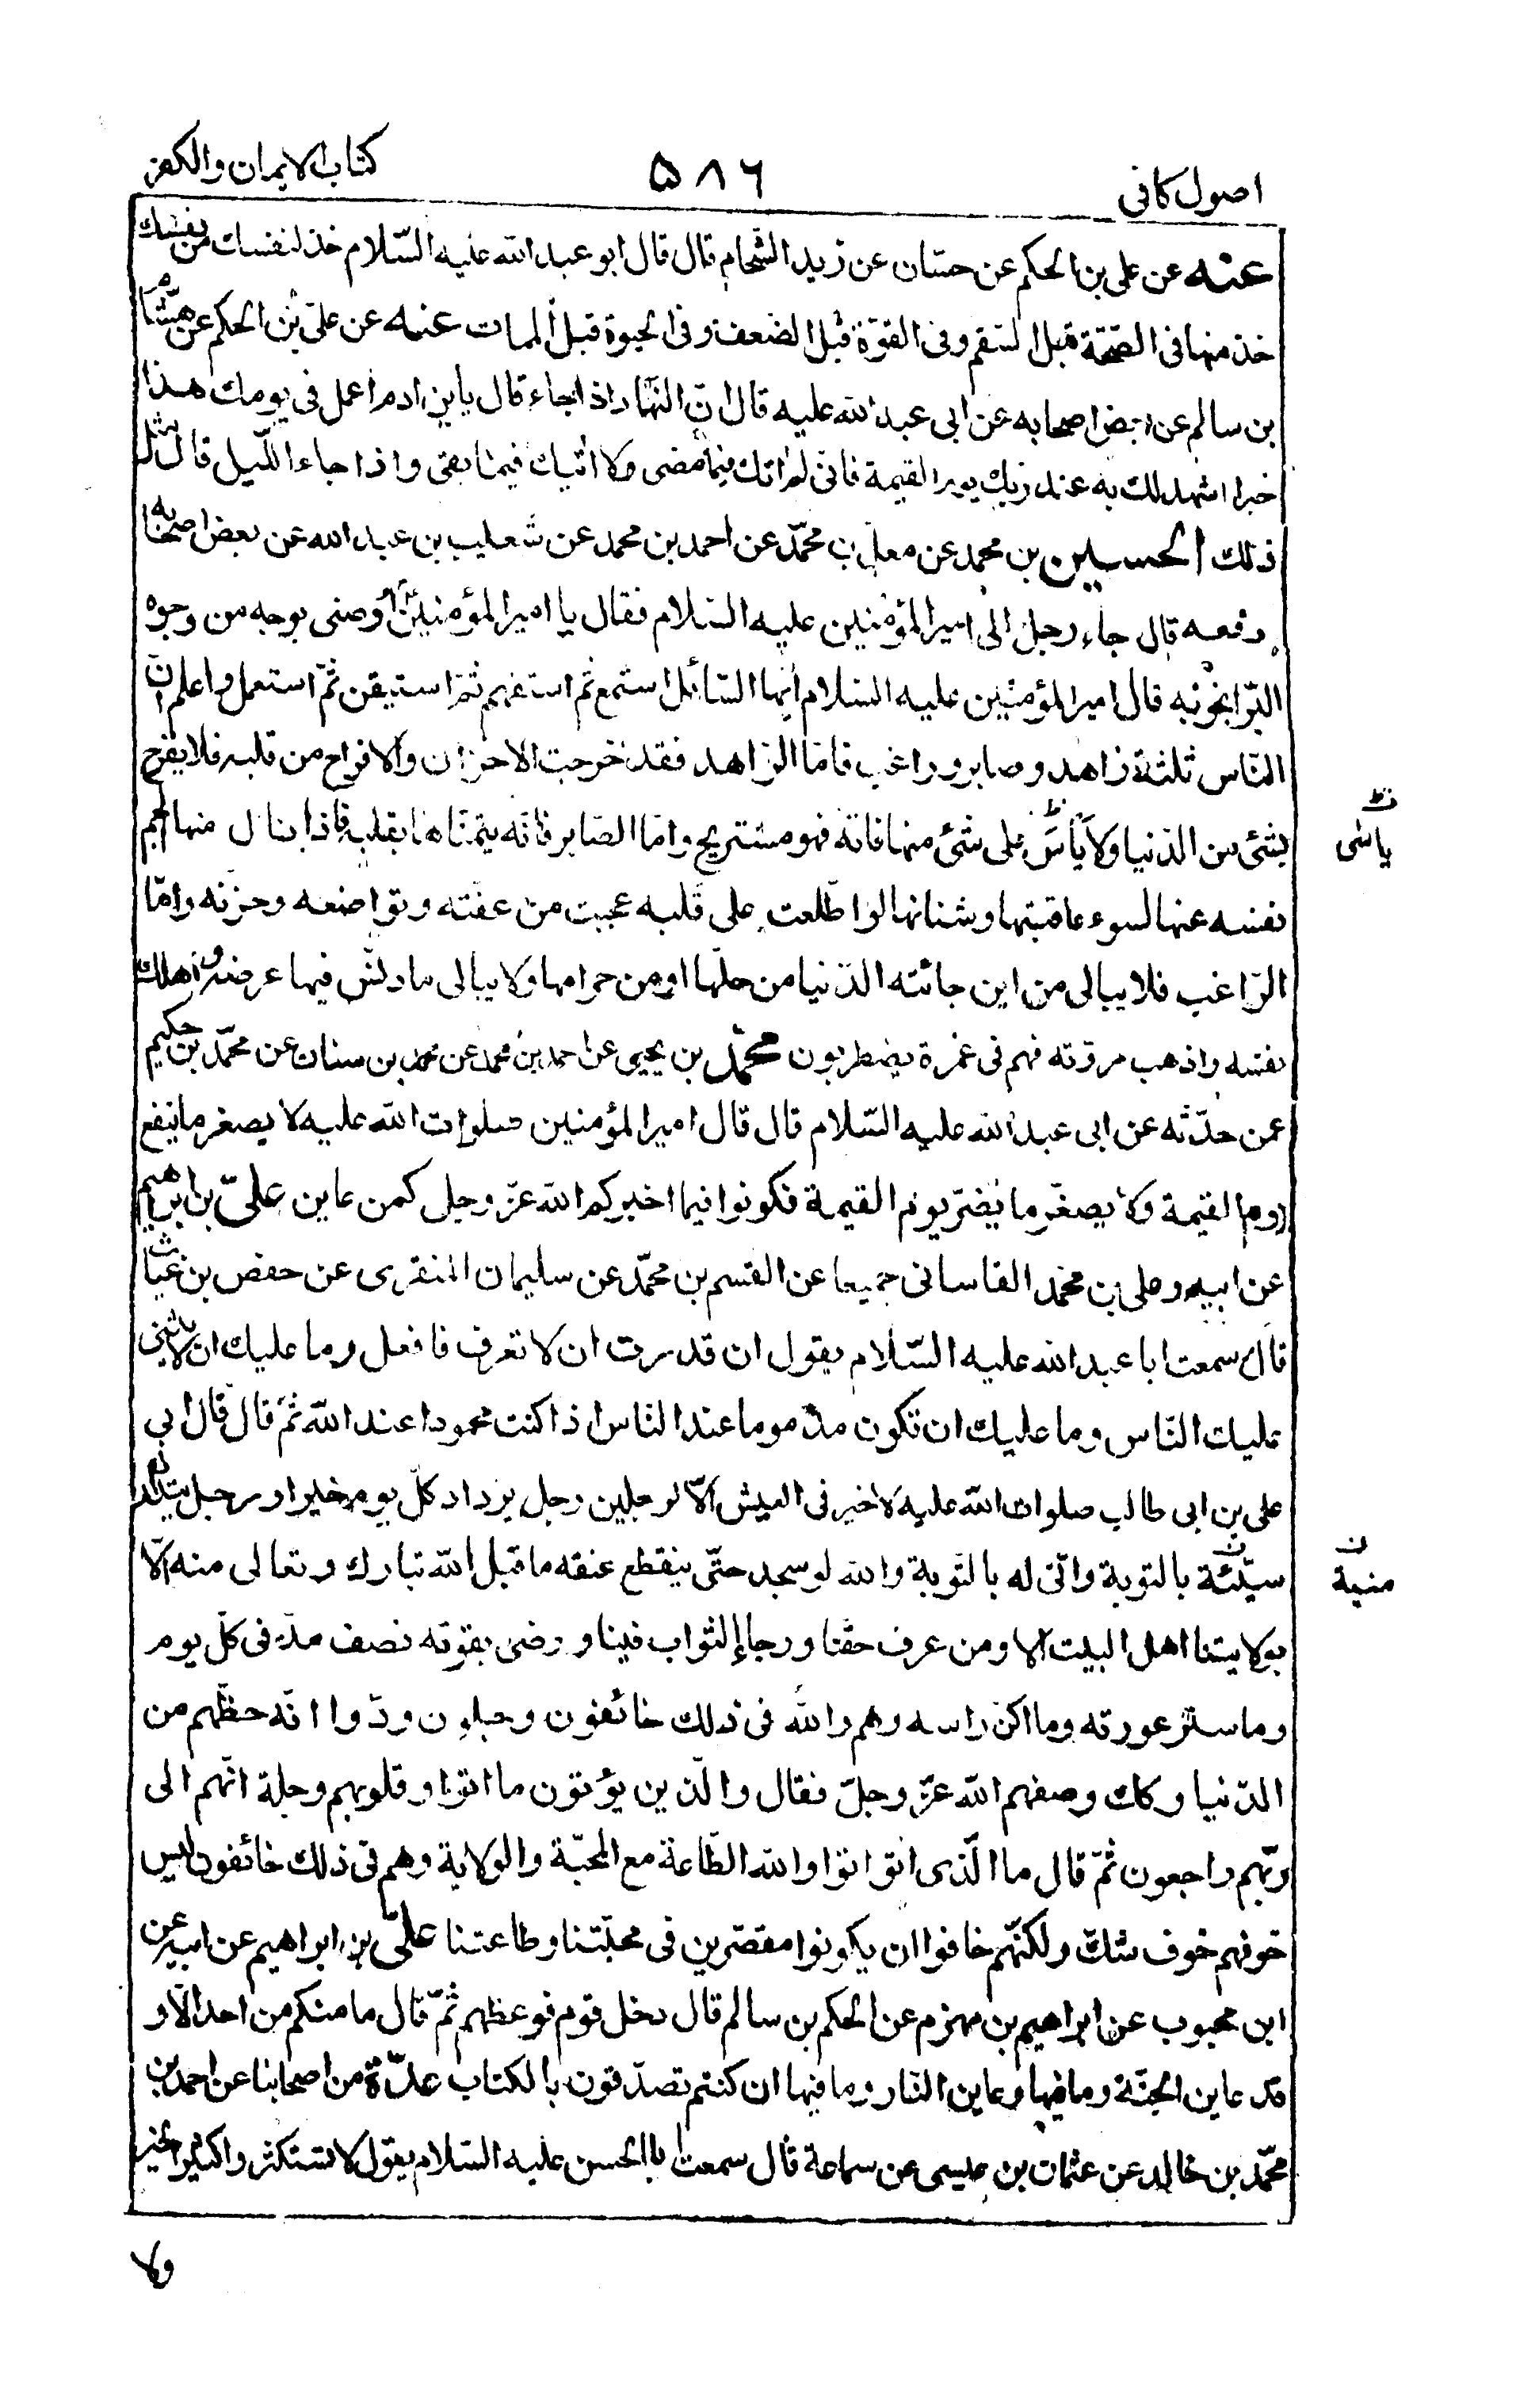 اصول كافى
۵۸۶
كتاب الايمان والكفر
عنه عن على بن الحكم عن حسّان عن زيد الشّحام قال قال ابو عبد الله عليه السّلام خذ لنفسك من نفسك
خذ منها فى الصّحّة قبل السّقم وفى القوّة قبل الضعف وفى الحيوة قبل الممات عنه عن علىّ بن الحكم عن هشام
بن سالم عن بعض اصحابه عن ابى عبد الله عليه قال انّ النّهار اذا جاء قال يا بن ادم اعمل فى يومك هذا
خيرا اشهد لك به عند ربك يوم القيمة فانى لم اتك فيما مضى ولا اتيك فيما بقى واذا جاء اللّيل قال مثل
ذلك الحسين بن محمد عن معلى بن محمّد عن احمد بن محمد عن شعيب بن عبد الله عن بعض اصحابه
رفعه قال جاء رجل الى امير المؤمنين عليه السّلام فقال يا امير المؤمنين اوصنى بوجه من وجوه
البّر انجو به قال امير المؤمنين عليه السلام ايّها السّائل استمع ثم استفهم ثم استيقن ثمّ استعمل واعلم انّ
النّاس ثلثة زاهد وصابر وراغب فامّا الزاهد فقد خرجت الاحزان والافراح من قلبه فلا يفرح
بشئ من الدّنيا ولا يأسَ على شئ منها فاته فهو مستريح وامّا الصّابر فانّه يتمنّاها بقلبه فاذا نال منها الجم
نفسه عنها لسوء عاقبتها وشنانها لو اطّلعت على قلبه عجبت من عفّته وتواضعه وحزنه وامّا
الرّاغب فلا يبالى من اين جائته الدّنيا من حلّها او من حرامها ولا يبالى ما دنّس فيها عرضه واهلك
نفسه واذهب مروّته فهم فى غمرة يضطربون محمّد بن يحيى عن احمد بن محمد عن محمد بن سنان عن محمّد بن حكيم
عمن حدّثه عن ابى عبد الله عليه السّلام قال قال امير المؤمنين صلوات الله عليه لا يصغر ما ينفع
يوم القيمة ولا يصغّر ما يضرّ يوم القيمة فكونوا فيما اخبركم الله عزّ وجل كمن عاين علىّ بن ابراهيم
عن ابيه وعلى بن محمّد القاسانى جميعا عن القسم بن محمّد عن سليمان المنقرى عن حفص بن غياث
قال سمعت ابا عبد الله عليه السّلام يقول ان قدرت ان لا تعرف فافعل وما عليك ان لا يثنى
عليك النّاس وما عليك ان تكون مذموما عند النّاس اذا كنت محمودا عند الله ثمّ قال قال ابى
على بن ابى طالب صلوات الله عليه لا خير فى العيش الّا لرجلين رجل يزداد كلّ يوم خيرا ورجل يتدارك
سيّئة بالتوبة وانّى له بالتّوبة والله لو سجد حتّى ينقطع عنقه ما قبل الله تبارك وتعالى منه الّا
بولايتنا اهل البيت الا ومن عرف حقّنا ورجا الثواب فينا ورضى بقوته نصف مدّ فى كلّ يوم
وما ستر عورته وما اكنّ راسه وهم والله فى ذلك خائفون وجلون ودّوا انّه حظّهم من
الدّنيا وكك وصفهم الله عزّ وجلّ فقال والّذين يؤتون ما اتوا وقلوبهم وجلة انّهم الى
ربّهم راجعون ثمّ قال ما الّذى اتوا اتوا والله الطّاعة مع المحبّة والولاية وهم فى ذلك خائفون ليس
خوفهم خوف شكّ ولكنّهم خافوا ان يكونوا مقصّرين فى محبّتنا وطاعتنا علىّ بن ابراهيم عن ابيه عن
ابن محبوب عن ابراهيم بن مهزم عن الحكم بن سالم قال دخل قوم فوعظهم ثمّ قال ما منكم من احد الّا و
قد عاين الجنّة وما فيها وعاين النّار وما فيها ان كنتم تصدّقون بالكتاب عدّة من اصحابنا عن احمد بن
محمّد بن خالد عن عثمان بن عيسى عن سماعة قال سمعت ابا الحسن عليه السّلام يقول لا تستكثروا كثير الخير
ياسى
منية
ولا